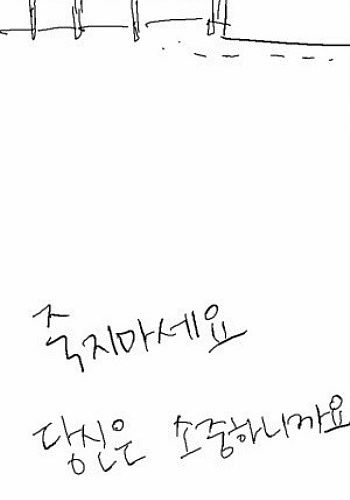 죽지마세요
당신은 소중하니까요